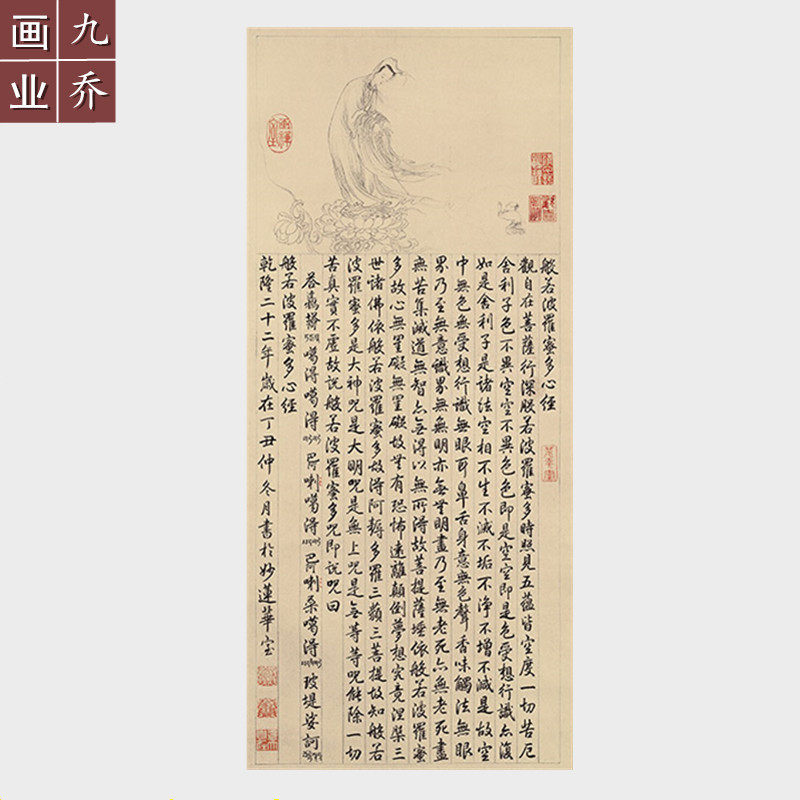 九乔
画业
般若波羅蜜多心經
觀自在菩薩行深般若波羅蜜多時照見五蘊皆空度一切苦厄
舍利子色不異空空不異色色即是空空即是色受想行識亦復
如是舍利子是諸法空相不生不滅不垢不淨不增不減是故空
中無色無受想行識無眼耳鼻舌身意無色聲香味觸法無眼
界乃至無意識界無無明亦無無明盡乃至無老死亦無老死盡
無苦集滅道無智亦無得以無所得故菩提薩埵依般若波羅蜜
多故心無罣礙無罣礙故無有恐怖遠離顛倒夢想究竟涅槃三
世諸佛依般若波羅蜜多故得阿耨多羅三藐三菩提故知般若
波羅蜜多是大神咒是大明咒是無上咒是無等等咒能除一切
苦真實不虛故說般若波羅蜜多咒即說咒曰
噶得噶得 巴喇噶得 巴喇桑噶得 玻堤娑訶
般若波羅蜜多心經
乾隆二十二年歲在丁丑仲冬月書於妙蓮華室